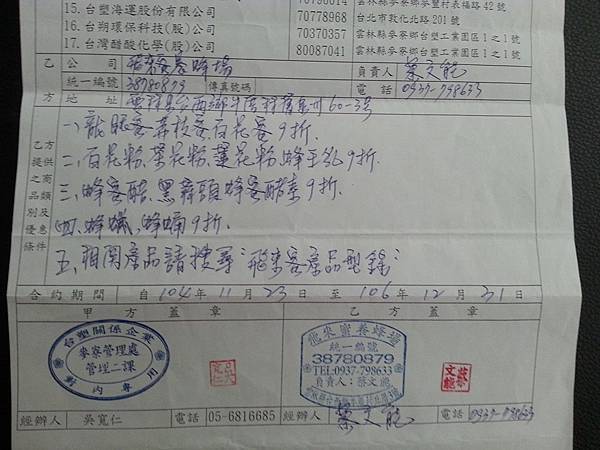 15. 台塑海運股份有限公司 70796014 雲林縣麥寮鄉麥豐村表福路42號
16. 台朔環保科技(股)公司 70778968 台北市敦化北路201號
17. 台灣醋酸化學(股)公司 70370357 雲林縣麥寮鄉台塑工業園區1之1號
80087041 雲林縣麥寮鄉台塑工業園區1之1號
乙方 公司 飛來蜜養蜂場 負責人 蔡文龍
統一編號 38780879 傳真號碼 電話 0937-798633
地址 雲林縣 60-3號
乙方提供之商品類別及優惠條件
一、龍眼蜜、荔枝蜜、百花蜜9折.
二、百花粉、茶花粉、蓮花粉、蜂王乳9折.
三、蜂蜜醋、黑蒜頭蜂蜜酵素9折.
四、蜂蠟、蜂蛹9折.
五、相關產品請搜尋"飛來客產品型錄"
合約期間 自104年11月23日至106年12月31日
甲方蓋章 乙方蓋章
台塑關係企業
麥寮管理處
管理二課
對內專用
飛來蜜養蜂場
統一編號
38780879
TEL:0937-798633
負責人:蔡文龍
蔡文龍
經辦人 吳寬仁 電話 05-6816685 經辦人 蔡文龍 電話 0937-798633